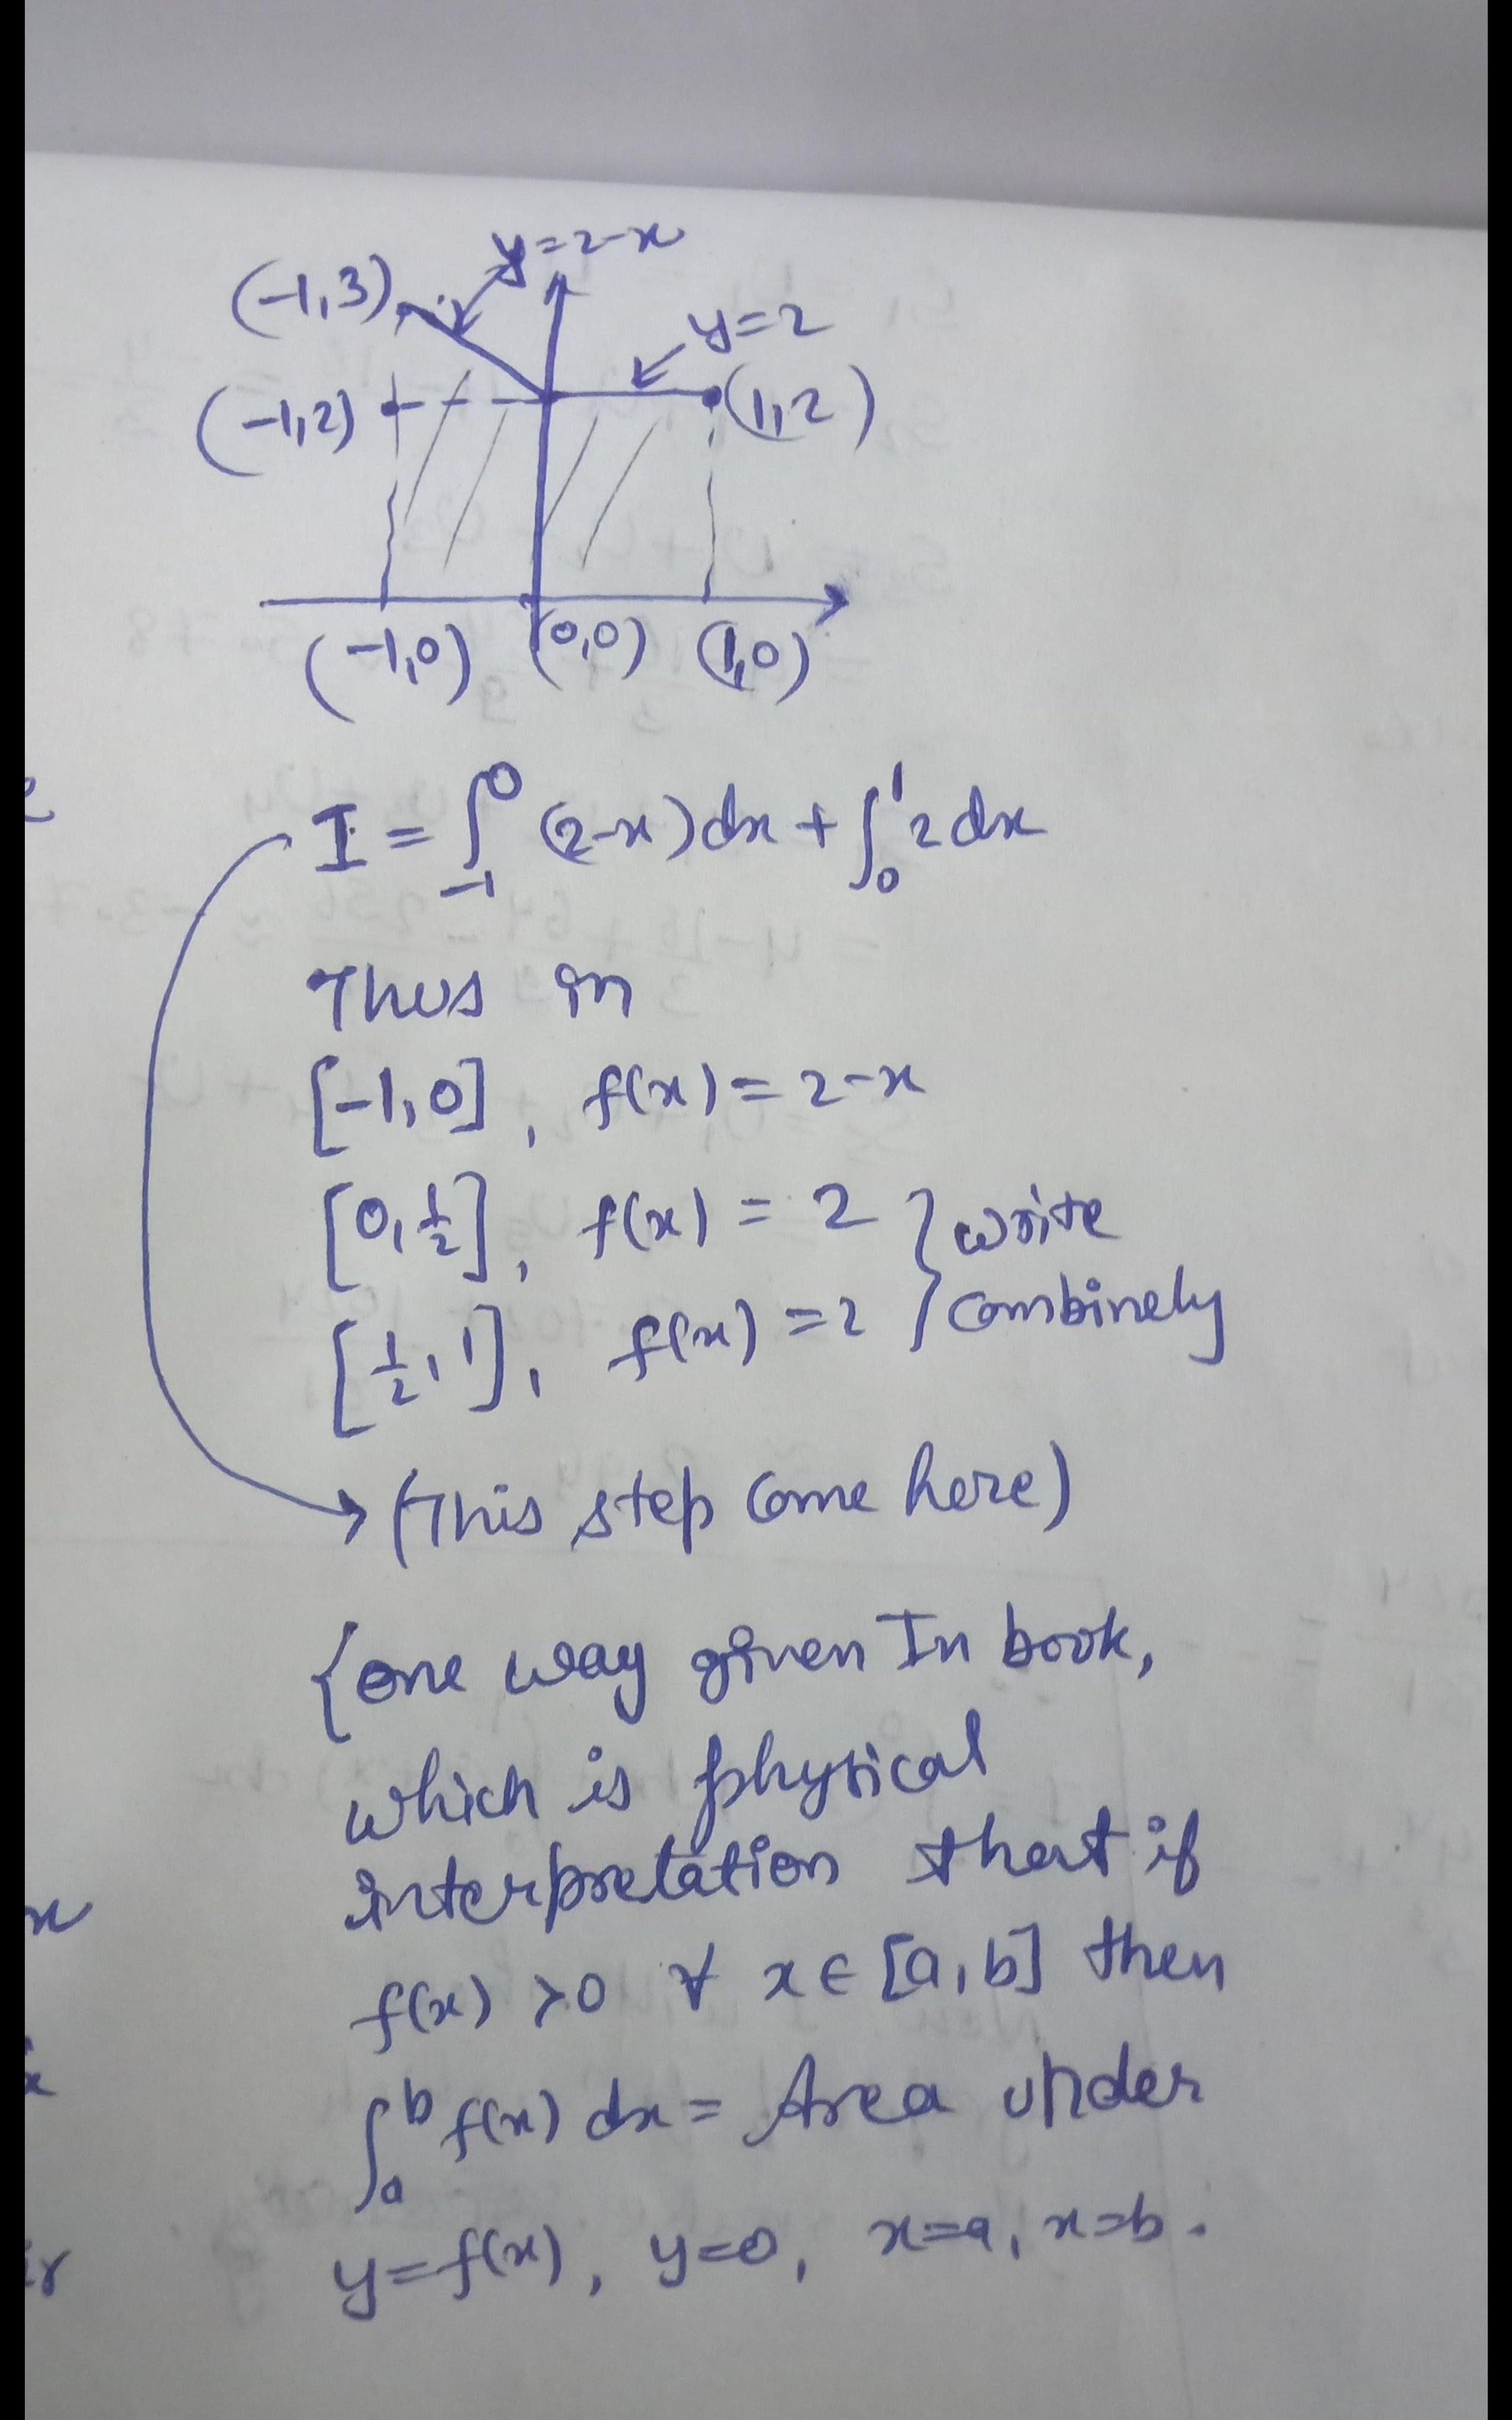 y=2-x
(-1,3)
y=2
(-1,2) (1,2)
(-1,0) (0,0) (1,0)
I = ∫₋₁⁰ (2-x)dx + ∫₀¹ 2dx
Thus in
[-1,0], f(x) = 2-x
[0,1/2], f(x) = 2 } write
[1/2,1], f(x) = 2 } combinely
→ (This step come here)
{one way given In book,
which is physical
interpretation that if
f(x) >0 ∀ x∈[a,b] then
∫ₐᵇ f(x) dx = Area under
y=f(x), y=0, x=a, x=b.